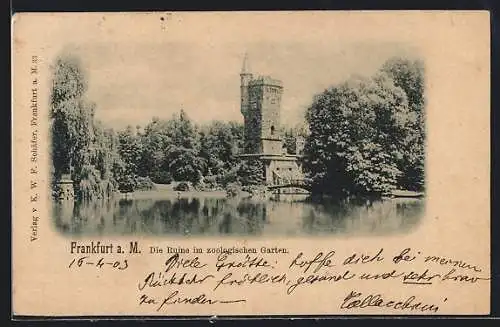 Verlag v. K. W. F. Schäfer, Frankfurt a. M. 33
Frankfurt a. M. Die Ruine im zoologischen Garten.
16-4-03 Viele Grüße: hoffe dich bei meiner
Rückkehr fröhlich, gesund und sehr brav
zu finden